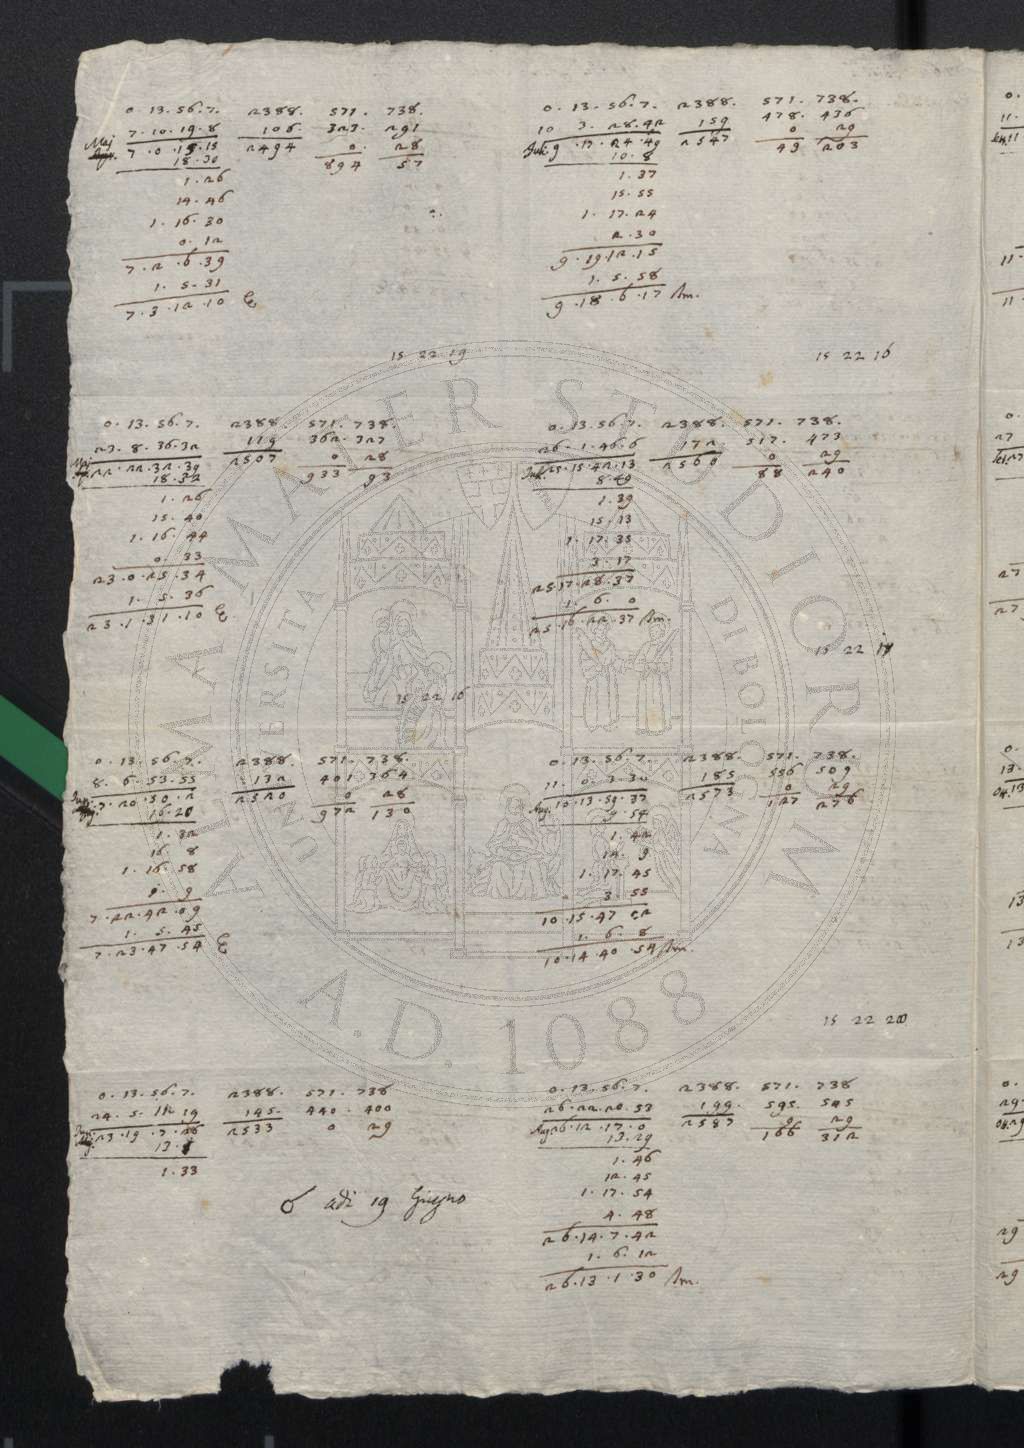 0. 13. 56. 7. 2388. 571. 738.
7. 10. 19. 8 106. 323. 291
Maj 7. 0. 15. 15 2494 0. 28
18. 30 894 57
1. 26
14. 46
1. 16. 30
0. 12
7. 2. 6. 39
1. 5. 31
7. 3. 12. 10 E
15 22 19
0. 13. 56. 7. 2388. 571. 738.
23. 8. 36. 32 119 362. 327
Maj 22. 22. 32. 39 2507 0 28
18. 32 933 93
1. 26
15. 40
1. 16. 44
0. 33
23. 0. 25. 34
1. 5. 36
23. 1. 31. 10 E
15 22 16
0. 13. 56. 7. 2388. 571. 738.
8. 6. 53. 55 132 401. 364
7. 20. 50. 2 2520 0 28
16. 20 972 130
1. 32
16 8
1. 16. 58
0. 9
7. 22. 42. 09
1. 5. 45
7. 23. 47. 54 E
0. 13. 56. 7. 2388. 571. 738
24. 5. 12 19 145. 440. 400
23. 19. 7. 26 2533 0 29
13.
1. 33
adi 19 Giugno
0. 13. 56. 7. 2388. 571. 738.
10 3. 28. 42 159 478. 436
Jul. 9. 17. 24. 49 2547 0 29
10. 8 49 203
1. 37
15. 55
1. 17. 24
2. 30
9. 19. 12. 15
1. 5. 58
9. 18. 6. 17 Am.
15 22 16
0. 13. 56. 7. 2388. 571. 738.
26. 1. 46. 6 172. 517. 473
Jul. 25. 15. 42. 13 2560 0 29
8. 49 88 240
1. 39
15. 13
1. 17. 35
3. 17
25. 17. 28. 37
1. 6. 0
25. 16. 22. 37 Am.
15 22
0. 13. 56. 7. 2388. 571. 738.
11. 0. 3. 30 185 556 509
Aug. 10. 13. 59. 37 2573 0 29
9. 54 127 276
1. 42
14. 9
1. 17. 45
3. 55
10. 15. 47
1. 6. 8
10. 14. 40. 54 Am.
15 22 20
0. 13. 56. 7. 2388. 571. 738
26. 22. 20. 53 199. 595. 545
Aug 26. 12. 17. 0 2587 0 29
13. 29 166 312
1. 46
12. 45
1. 17. 54
4. 48
26. 14. 7. 42
1. 6. 12
26. 13. 1. 30 Am.
ALMA MATER STUDIORUM
UNIVERSITÀ DI BOLOGNA
A.D. 1088